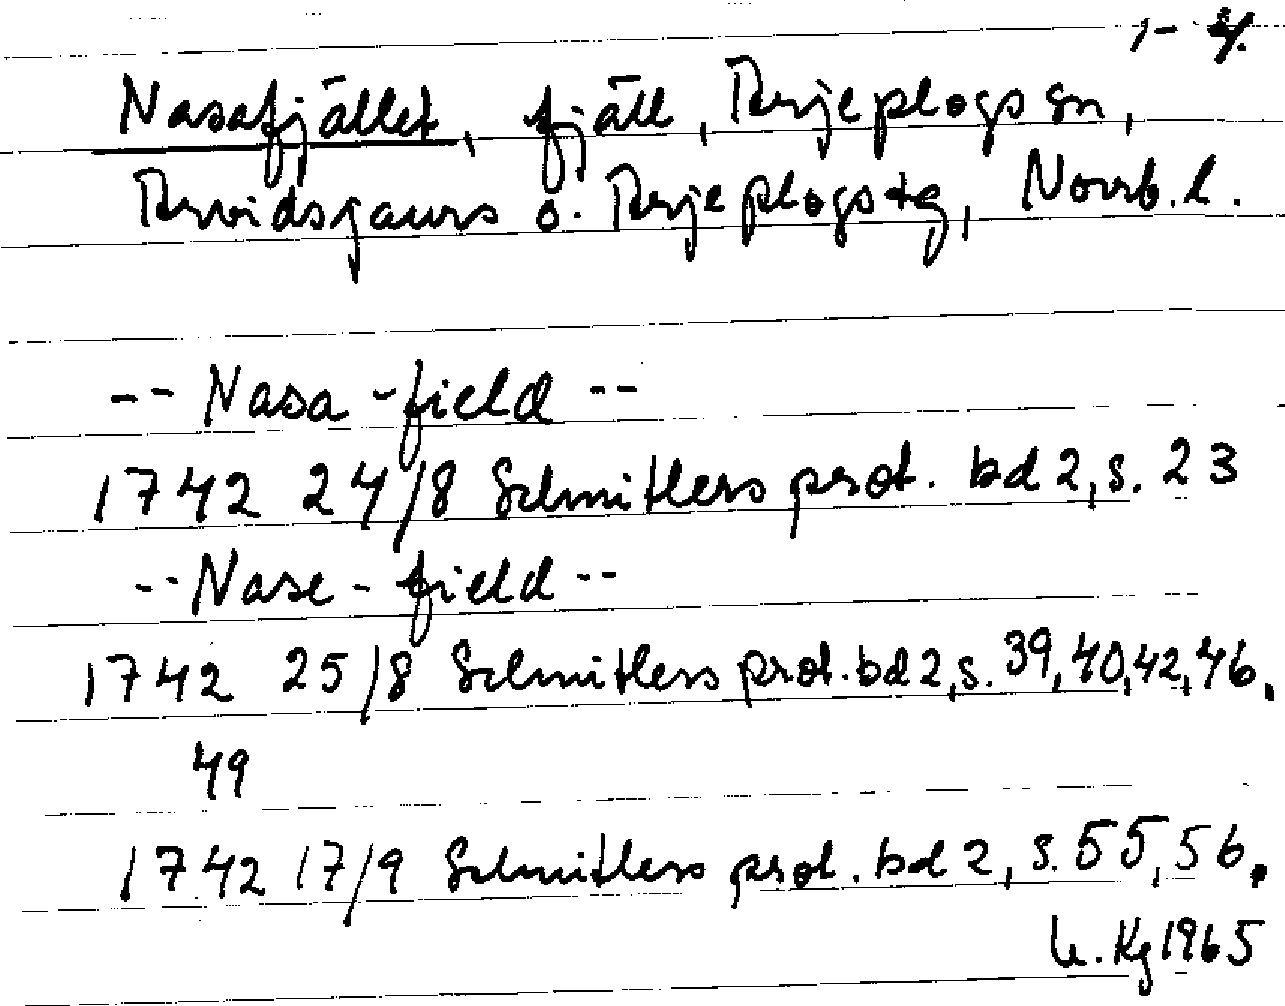 1-2/.
Nasafjället, fjäll, Arjeplogs sn,
Arvidsjaurs o. Arjeplogs tg, Norrb. l.
-- Nasa-field --
1742 24/8 Schnitlers prot. bd 2, s. 23
-- Nase-field --
1742 25/8 Schnitlers prot. bd 2, s. 39, 40, 42, 46,
49
1742 17/9 Schnitlers prot. bd 2, s. 55, 56.
Kg 1965